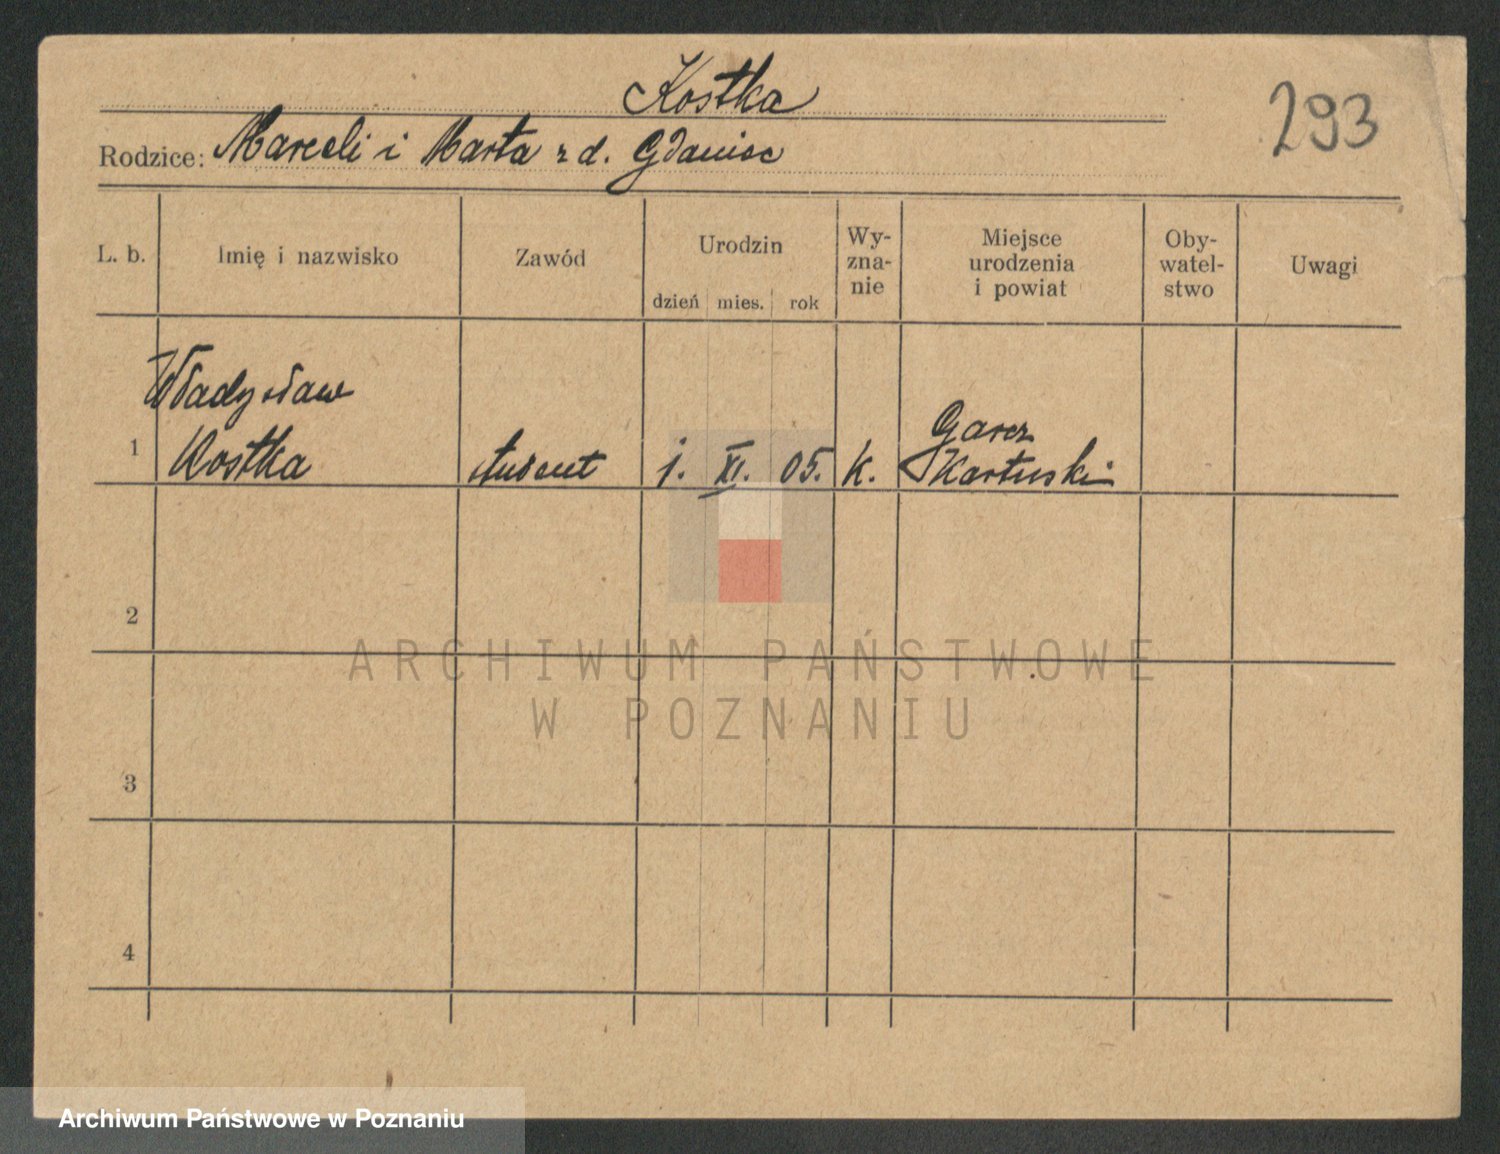 Kostka
293
Rodzice: Marceli i Marta z d. Gdaniec
L. b.
Imię i nazwisko
Zawód
Urodzin
dzień mies. rok
Wy-
zna-
nie
Miejsce
urodzenia
i powiat
Oby-
watel-
stwo
Uwagi
Władysław
1 Kostka student 1. XI. 05. k.
Garcz
Kartuski
2
ARCHIWUM PAŃSTWOWE
W POZNANIU
3
4
Archiwum Państwowe w Poznaniu